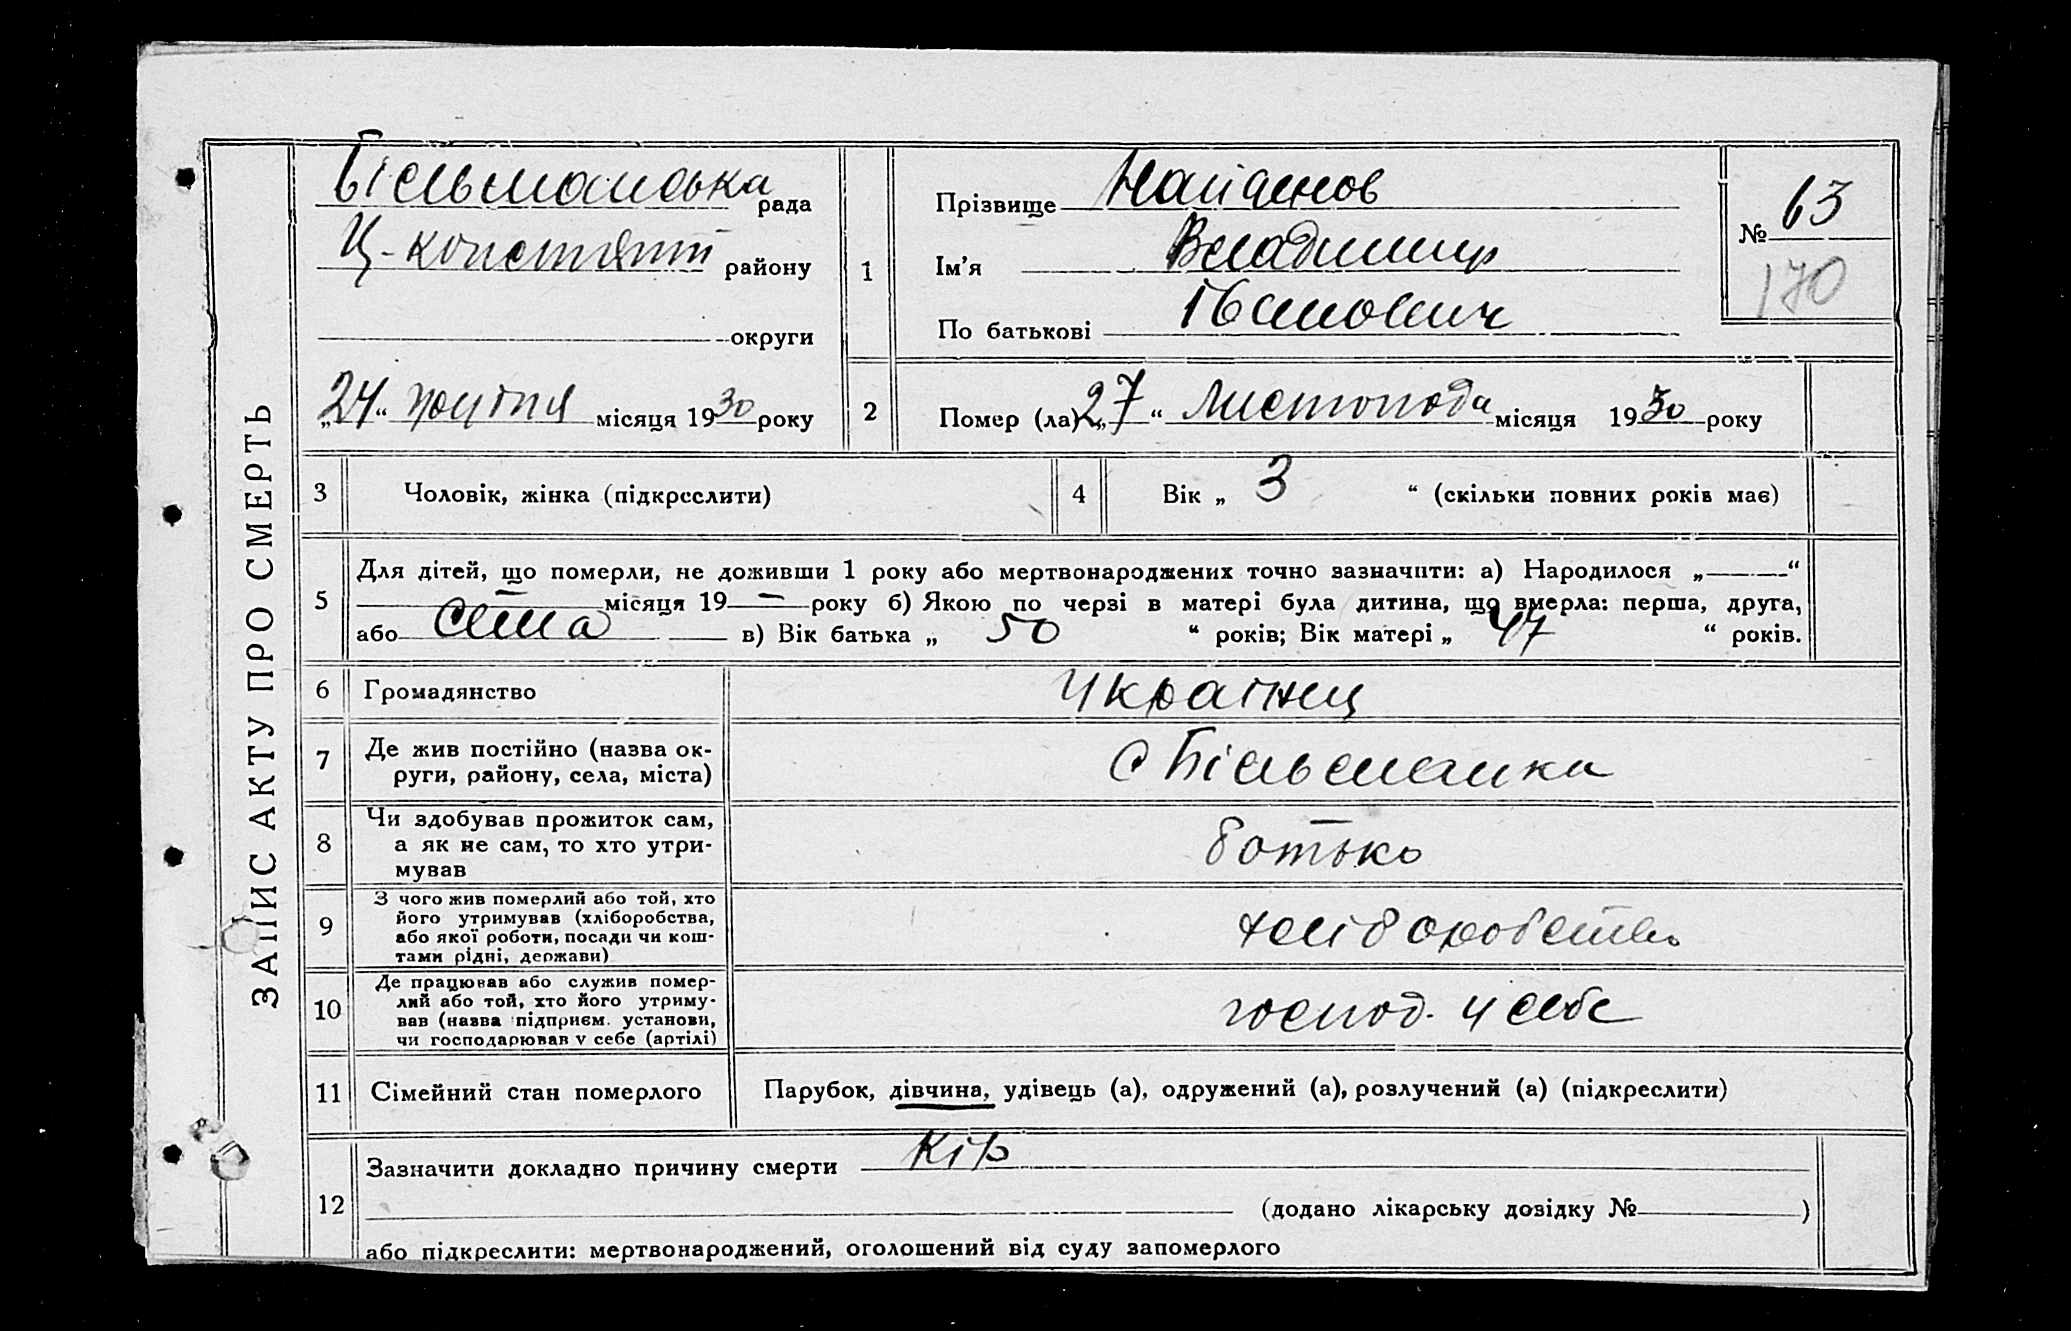 ЗАПИС АКТУ ПРО СМЕРТЬ
Більманська рада
Ц-констянт району
округи
„24“ жовтня місяця 1930 року
1
Прізвище Найденов
Ім’я Владимир
По батькові Іванович
№ 63
170
2
Помер (ла) „27“ Листопода місяця 1930 року
3 Чоловік, жінка (підкреслити)
4 Вік „ 3 “ (скільки повних років має)
5
Для дітей, що померли, не доживши 1 року або мертвонароджених точно зазначити: а) Народилося „——“
місяця 19 — року б) Якою по черзі в матері була дитина, що вмерла: перша, друга,
або сема в) Вік батька „ 50 “ років; Вік матері „ 47 “ років.
6 Громадянство Українец
7 Де жив постійно (назва ок-
руги, району, села, міста)
с Більманка
8 Чи здобував прожиток сам,
а як не сам, то хто утри-
мував
батько
9 З чого жив померлий або той, хто
його утримував (хліборобства,
або якої роботи, посади чи кош-
тами рідні, держави)
хліборобство
10 Де працював або служив помер-
лий або той, хто його утриму-
вав (назва підприєм. установи,
чи господарював у себе (артілі)
господ. у себе
11 Сімейний стан померлого Парубок, дівчина, удівець (а), одружений (а), розлучений (а) (підкреслити)
12
Зазначити докладно причину смерти Кір
(додано лікарську довідку № )
або підкреслити: мертвонароджений, оголошений від суду запомерлого